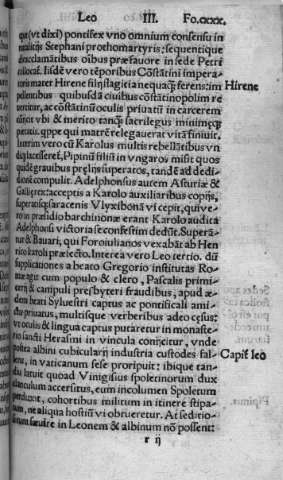 Leo III. Fo.cxxx.
qui (vt dixi) pontifex vno omnium consensu in
natalicijs Stephani prothomartyris: sequentique
declamātibus oībus præfauore in sede Petri
collocaf. Iisdē vero tēporibus Cōstātini impera-
toris mater Hirene filij flagitia nequaq̃ ferens: im
Hirene
pellentibus quibusdā ciuibus cōstātinopolim re
uertitur, ac cōstātinū oculis priuatū in carcerem
cōijcit vbi & merito tanq̃ sacrilegus minimeq̃
pietatis, qppe qui matrē relegauerat vitā finiuit.
Iterim vero cū Karolus multis rebellātibus vn
dique Pipinū filiū in vngaros misit quos
quidē grauibus prelijs superatos, tandē ad dedi-
tionē compulit. Adelphonsus autem Asturiæ &
Galliæ rex: acceptis a Karolo auxiliaribus copijs,
superatisq; saracenis Vlyxibonā vi cepit, quive-
ro in præsidio barchinonæ erant Karolo audita
Adelphonsi victoria se confestim dedūt. Superā-
tur & Bauari, qui Foroiulianos vexabāt ab Hen
rico karoli præfecto. Interea vero Leo tertio. dū
supplicationes a beato Gregorio institutas Ro-
mæ agit cum populo & clero, Pascalis primi-
cerij & campuli presbyteri fraudibus, apud æ-
dem beati Syluestri captus ac pontificali ami-
ctu priuatus, multisque verberibus adeo cesus:
vt oculis & lingua captus putaretur in monaste-
rio sancti Herasmi in vincula conijcitur, vnde
postea albini cubicularij industria custodes fal-
Capif leo
lens, in vaticanum sese proripuit: ibique tan-
diu latuit quoad Vinigisius spoletinorum dux
clanculum accersitus, eum incolumen Spoletum
perduxit, cohortibus militum in itinere stipa-
tum, ne aliqua hostiū vi obrueretur. At seditio-
rum sæuire in Leonem & albinum nō possent
r ij